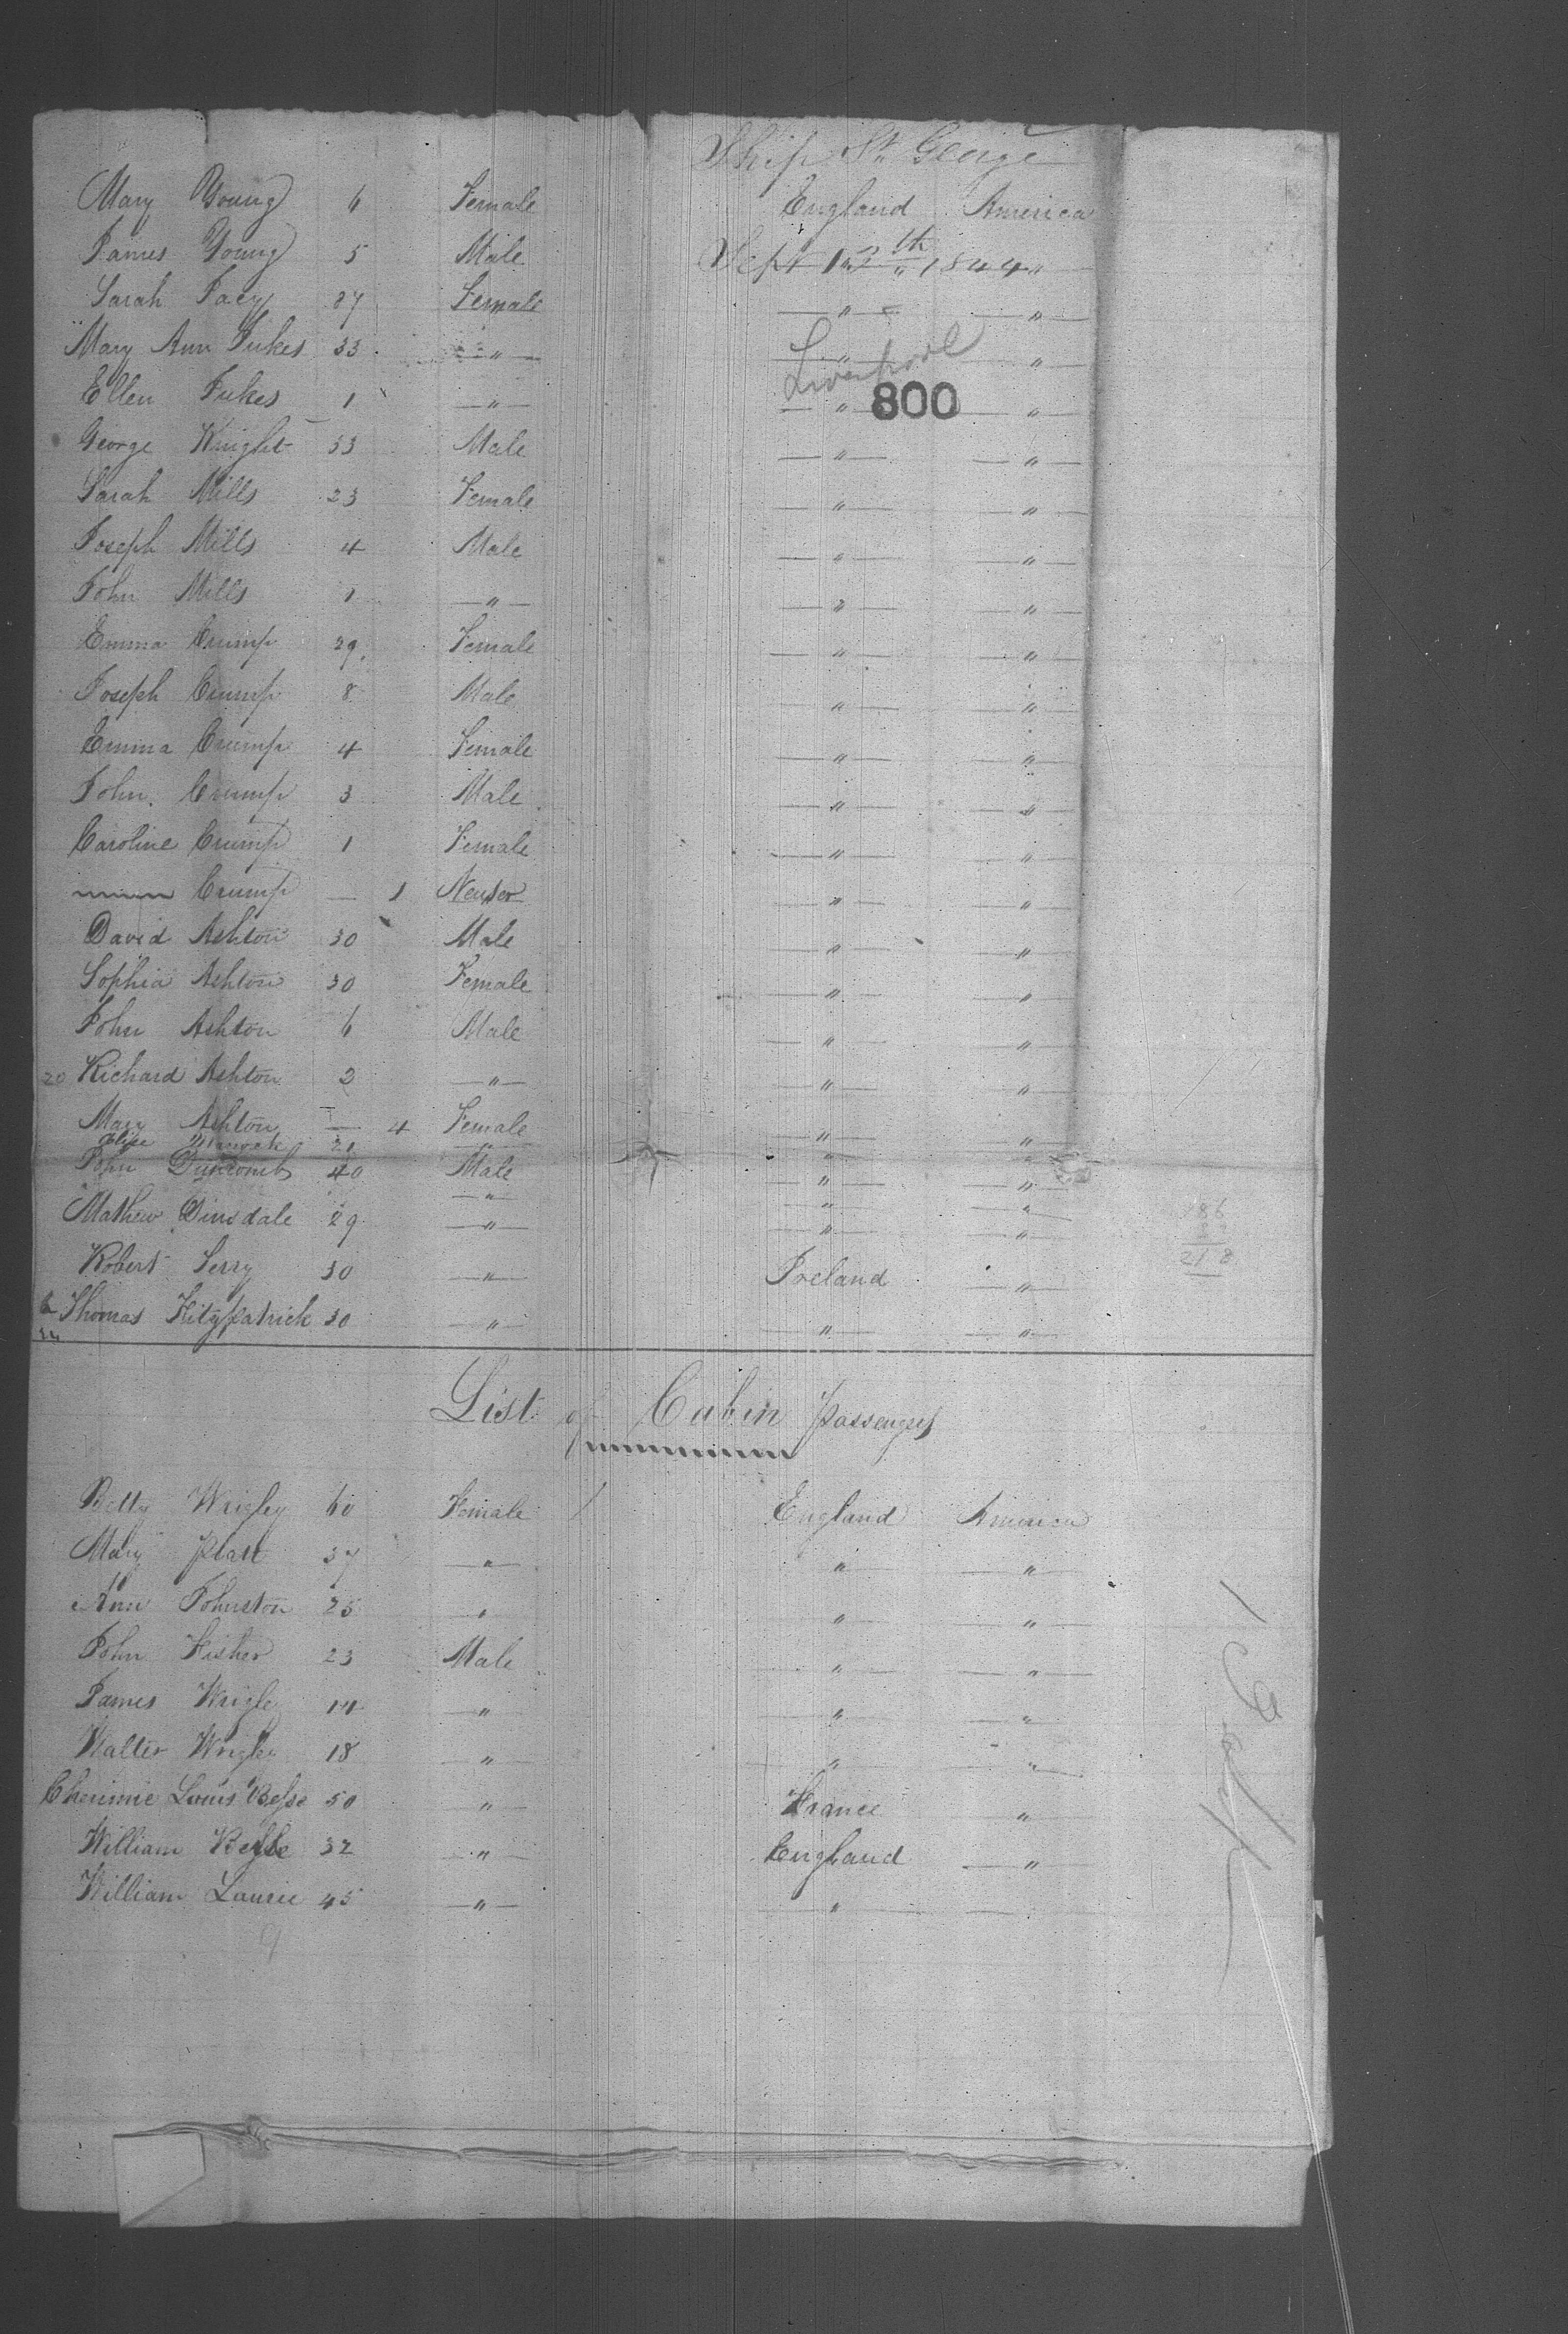 Ship St. George
Mary Young 6 Female England America
James Young 5 Male Sept 12th 1844 "
Sarah Facy 27 Female " "
Mary Ann Jukes 33 " " "
Liverpool
Ellen Jukes 1 " " 800 "
George Knight 53 Male " "
Sarah Mills 23 Female " "
Joseph Mills 4 Male " "
John Mills 1 " " "
Emma Crump 29 Female " "
Joseph Crump 8 Male " "
Emma Crump 4 Female " "
John Crump 3 Male " "
Caroline Crump 1 Female " "
Crump — 1 Neuter " "
David Ashton 30 Male " "
Sophia Ashton 30 Female " "
John Ashton 6 Male " "
20 Richard Ashton 2 " " "
Mary Ashton — 4 Female " "
21 " " "
John Duncomb 40 Male " "
" " "
Mathew Dinsdale 29 " " "
186
218
Robert Serry 30 " Ireland "
Thomas Fitzpatrick 30 " " "
List of Cabin passengers
Betty Wrigley 60 Female England America
Mary Platt 37 " " "
Ann Johnston 25 " " "
John Fisher 23 Male " "
James Wrigley 14 " " "
Walter Wrigley 18 " " "
Louis Besse 50 " France "
William 32 " England "
William Laurie 45 " "
9